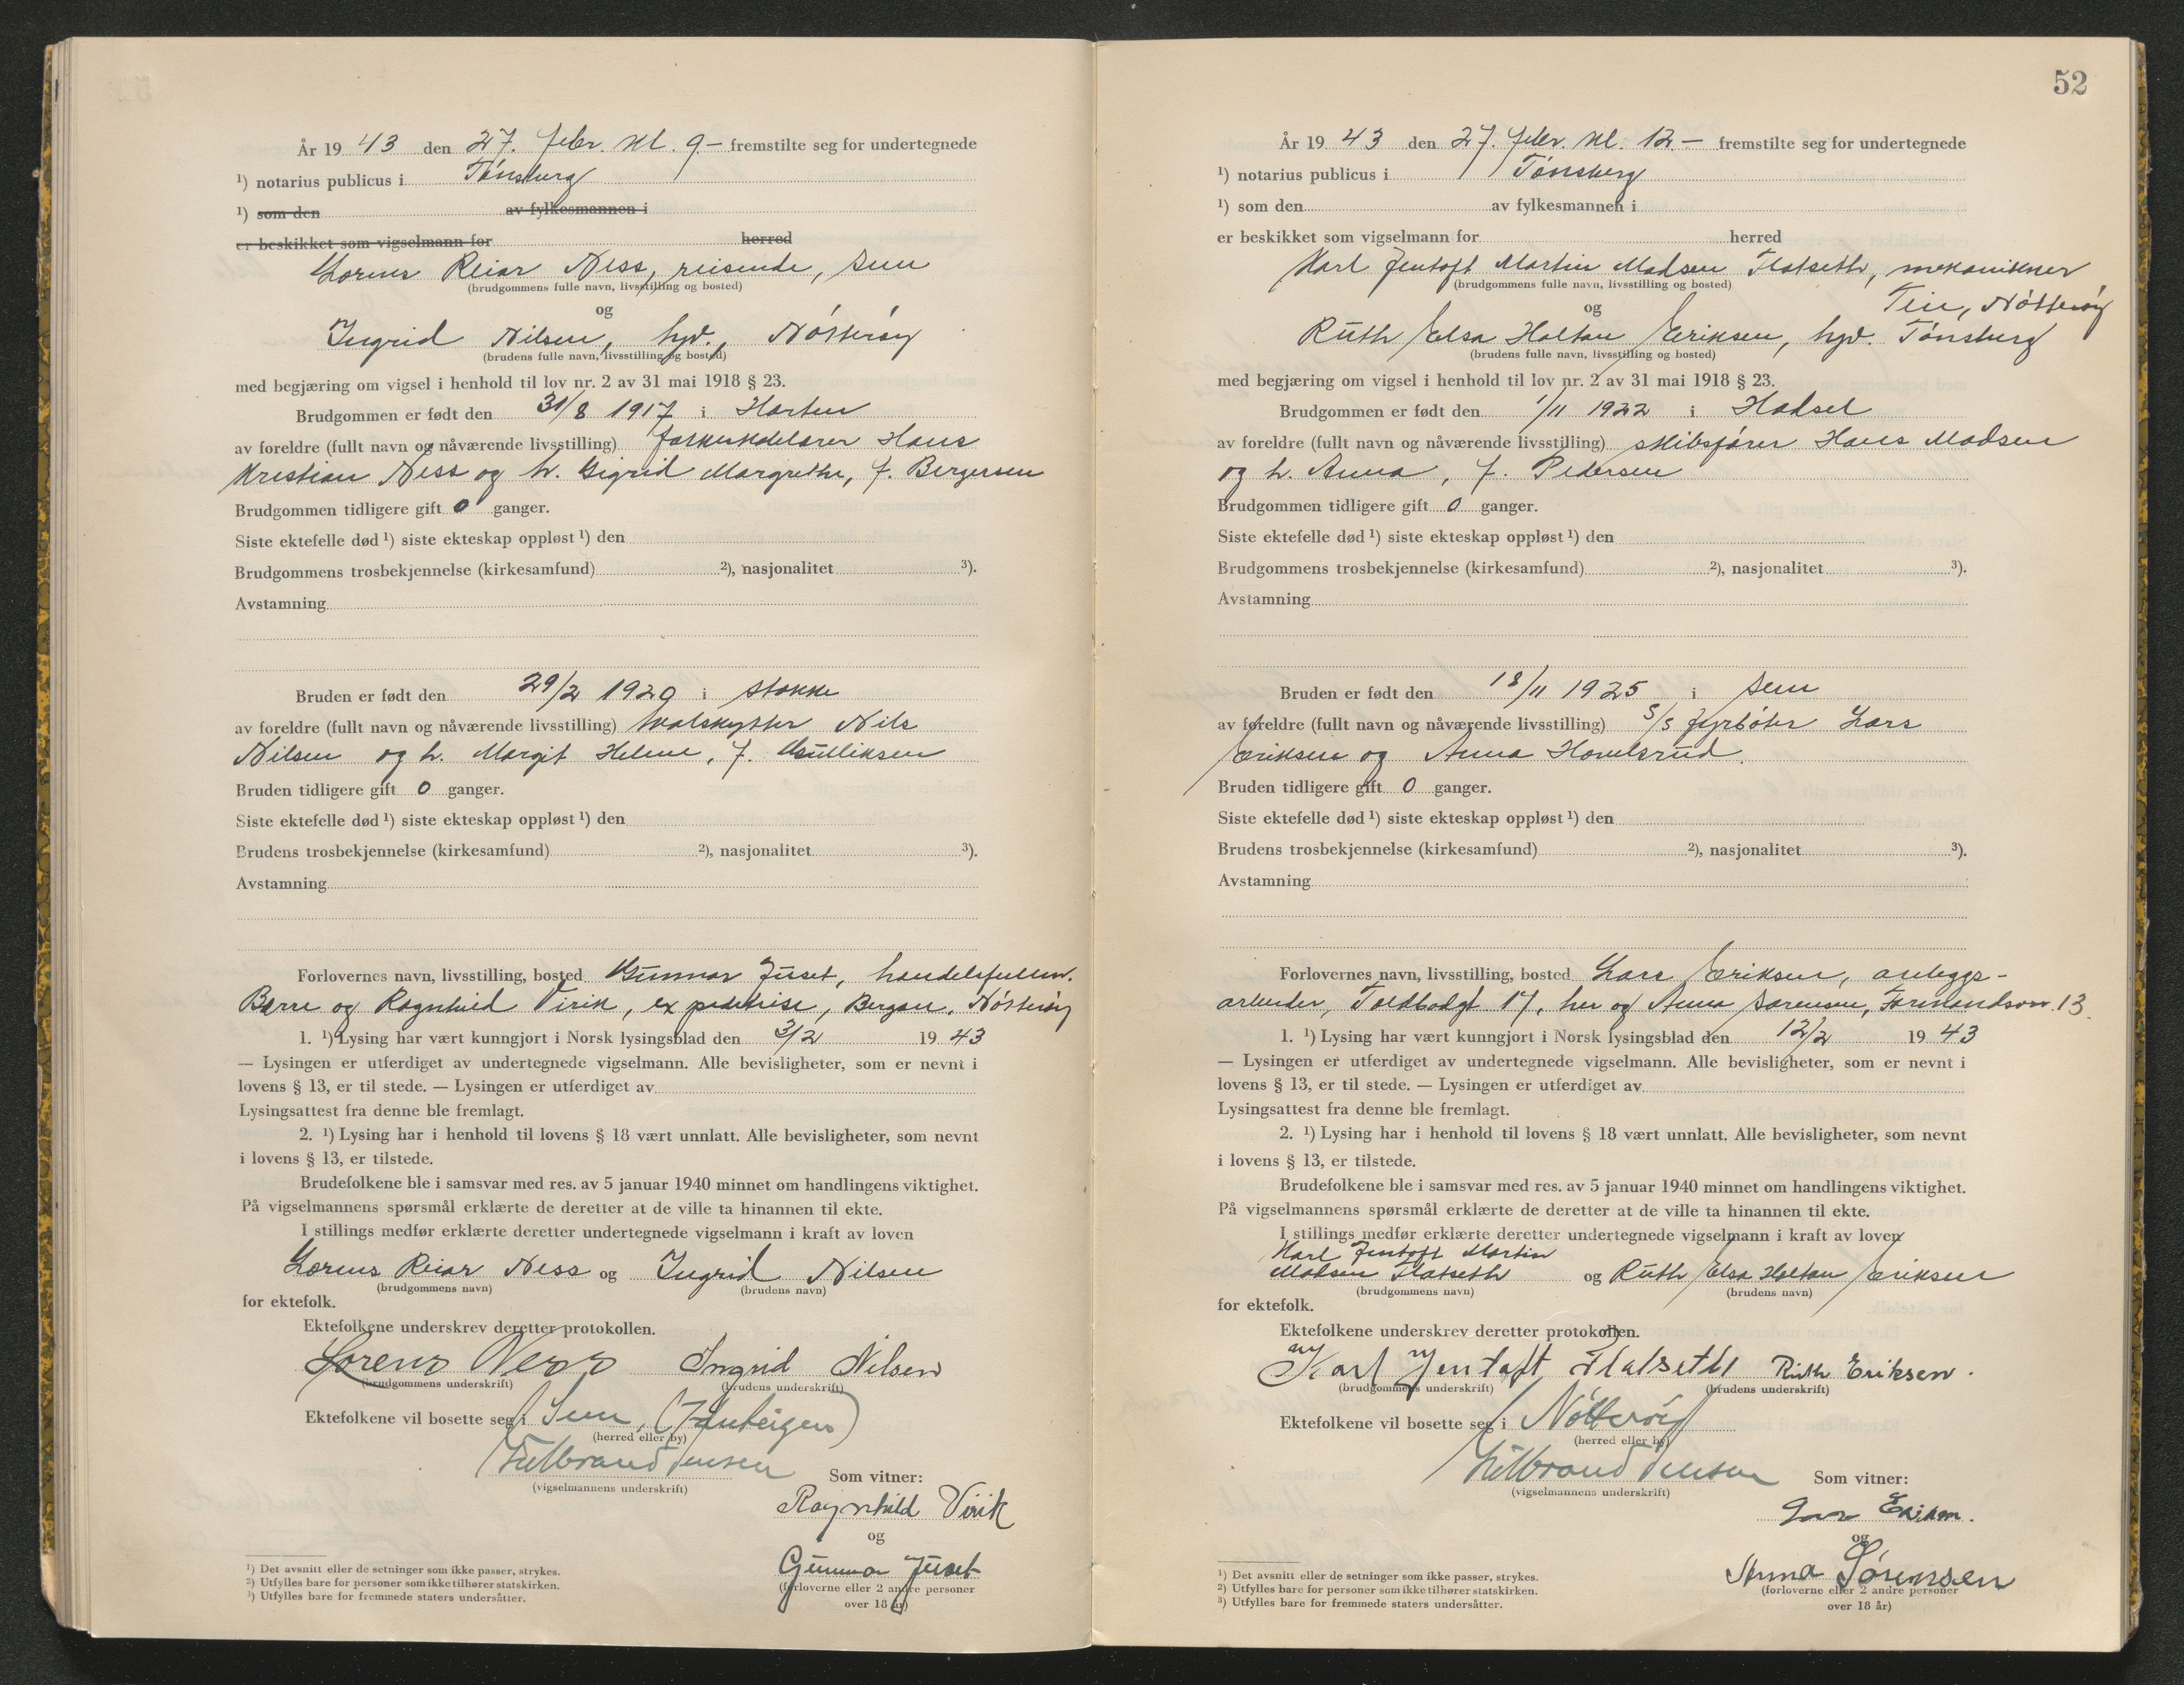 År 19 43 den 27. febr. kl. 9 – fremstilte seg for undertegnede
¹) notarius publicus i Tønsberg
¹) som den av fylkesmannen i
er beskikket som vigselmann for herred
Lorens Reiar Ness, reisende, Sem
(brudgommens fulle navn, livsstilling og bosted)
og
Ingrid Nilsen, hgv., Nøtterøy
(brudens fulle navn, livsstilling og bosted)
med begjæring om vigsel i henhold til lov nr. 2 av 31 mai 1918 § 23.
Brudgommen er født den 31/8 1917 i Horten
av foreldre (fullt navn og nåværende livsstilling) Hans
Kristian Ness og h. Sigrid Margrethe, f. Bergersen
Brudgommen tidligere gift 0 ganger.
Siste ektefelle død ¹) siste ekteskap oppløst ¹) den
Brudgommens trosbekjennelse (kirkesamfund) ²), nasjonalitet ³).
Avstamning
Bruden er født den 29/2 1920 i Stokke
av foreldre (fullt navn og nåværende livsstilling) hvalskytter Nils
Nilsen og h. Margit Helene, f. Gulliksen
Bruden tidligere gift 0 ganger.
Siste ektefelle død ¹) siste ekteskap oppløst ¹) den
Brudens trosbekjennelse (kirkesamfund) ²), nasjonalitet ³).
Avstamning
Forlovernes navn, livsstilling, bosted Gunnar Juset, handelsfullm.
Borre og Ragnhild Virik, expeditrise, Bergan, Nøtterøy
1. ¹) Lysing har vært kunngjort i Norsk lysingsblad den 3/2 19 43
— Lysingen er utferdiget av undertegnede vigselmann. Alle bevisligheter, som er nevnt i
lovens § 13, er til stede. — Lysingen er utferdiget av
Lysingsattest fra denne ble fremlagt.
2. ¹) Lysing har i henhold til lovens § 18 vært unnlatt. Alle bevisligheter, som nevnt
i lovens § 13, er tilstede.
Brudefolkene ble i samsvar med res. av 5 januar 1940 minnet om handlingens viktighet.
På vigselmannens spørsmål erklærte de deretter at de ville ta hinannen til ekte.
I stillings medfør erklærte deretter undertegnede vigselmann i kraft av loven
Lorens Reiar Ness og Ingrid Nilsen
(brudgommens navn) (brudens navn)
for ektefolk.
Ektefolkene underskrev deretter protokollen.
Lorens Ness Ingrid Nilsen
(brudgommens underskrift) (brudens underskrift)
Ektefolkene vil bosette seg i Sem,
(herred eller by)
Hilbrand Jensen Som vitner:
(vigselmannens underskrift)
Ragnhild Virik
og
Gunnar Juset
(forloverne eller 2 andre personer
over 18 år)
¹) Det avsnitt eller de setninger som ikke passer, strykes.
²) Utfylles bare for personer som ikke tilhører statskirken.
³) Utfylles bare for fremmede staters undersåtter.
52
År 19 43 den 27. febr. kl. 12. – fremstilte seg for undertegnede
¹) notarius publicus i Tønsberg
¹) som den av fylkesmannen i
er beskikket som vigselmann for herred
Karl Jentoft Martin Madsen Flatseth, mekaniker
(brudgommens fulle navn, livsstilling og bosted)
Teie, Nøtterøy
og
Ruth Elsa Holtan Eriksen, hgv. Tønsberg
(brudens fulle navn, livsstilling og bosted)
med begjæring om vigsel i henhold til lov nr. 2 av 31 mai 1918 § 23.
Brudgommen er født den 1/11 1922 i Hadsel
av foreldre (fullt navn og nåværende livsstilling) skibsfører Hans Madsen
og h. Anna, f. Pedersen
Brudgommen tidligere gift 0 ganger.
Siste ektefelle død ¹) siste ekteskap oppløst ¹) den
Brudgommens trosbekjennelse (kirkesamfund) ²), nasjonalitet ³).
Avstamning
Bruden er født den 18/11 1925 i Sem
av foreldre (fullt navn og nåværende livsstilling) S/S fyrbøter Lars
Eriksen og Anna Hovelsrud.
Bruden tidligere gift 0 ganger.
Siste ektefelle død ¹) siste ekteskap oppløst ¹) den
Brudens trosbekjennelse (kirkesamfund) ²), nasjonalitet ³).
Avstamning
Forlovernes navn, livsstilling, bosted Lars Eriksen, anleggs-
arbeider, Toldbodgt 17, her og Anna Sørensen, 13.
1. ¹) Lysing har vært kunngjort i Norsk lysingsblad den 12/2 19 43
— Lysingen er utferdiget av undertegnede vigselmann. Alle bevisligheter, som er nevnt i
lovens § 13, er til stede. — Lysingen er utferdiget av
Lysingsattest fra denne ble fremlagt.
2. ¹) Lysing har i henhold til lovens § 18 vært unnlatt. Alle bevisligheter, som nevnt
i lovens § 13, er tilstede.
Brudefolkene ble i samsvar med res. av 5 januar 1940 minnet om handlingens viktighet.
På vigselmannens spørsmål erklærte de deretter at de ville ta hinannen til ekte.
I stillings medfør erklærte deretter undertegnede vigselmann i kraft av loven
Karl Jentoft Martin
Madsen Flatseth og Ruth Elsa Holtan Eriksen
(brudgommens navn) (brudens navn)
for ektefolk.
Ektefolkene underskrev deretter protokollen.
Karl Jentoft Flatseth Ruth Eriksen.
(brudgommens underskrift) (brudens underskrift)
Ektefolkene vil bosette seg i Nøtterøy
(herred eller by)
Hilbrand Jensen Som vitner:
(vigselmannens underskrift)
Lars Eriksen.
og
Anna Sørensen
(forloverne eller 2 andre personer
over 18 år)
¹) Det avsnitt eller de setninger som ikke passer, strykes.
²) Utfylles bare for personer som ikke tilhører statskirken.
³) Utfylles bare for fremmede staters undersåtter.